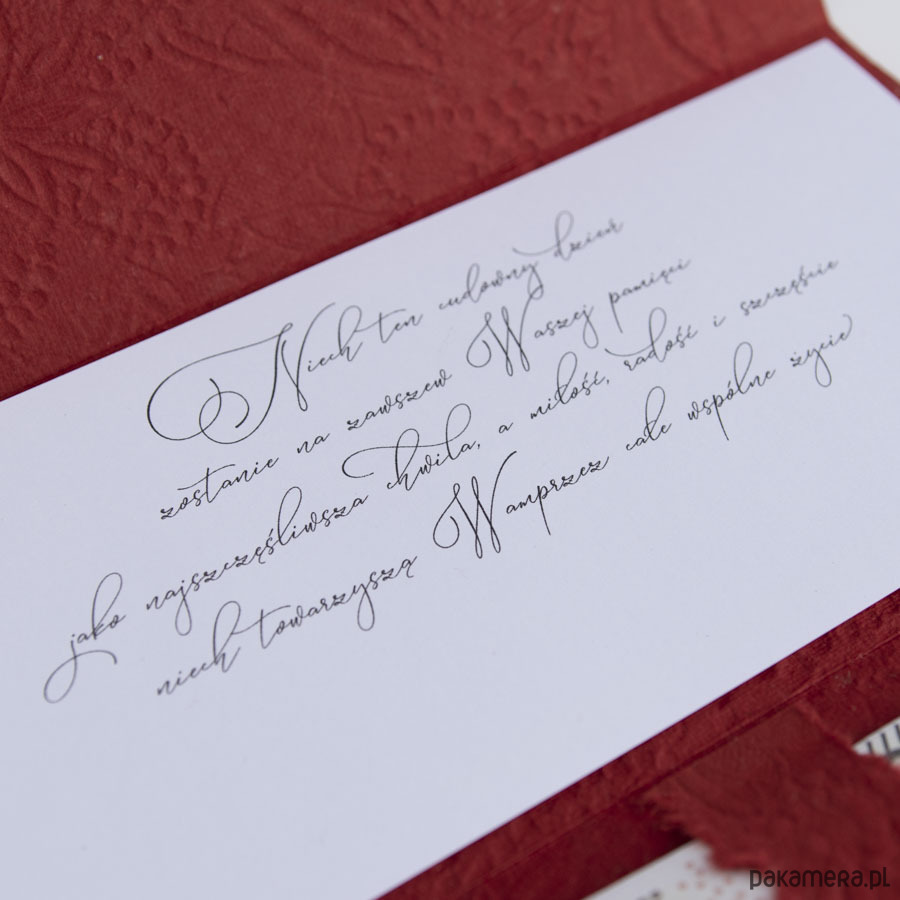 Niech ten cudowny dzień
zostanie na zawszew Waszej pamięci
jako najszczęśliwsza chwila, a miłość, radość i szczęście
niech towarzyszą Wamprzez całe wspólne życie
pakamera.pl